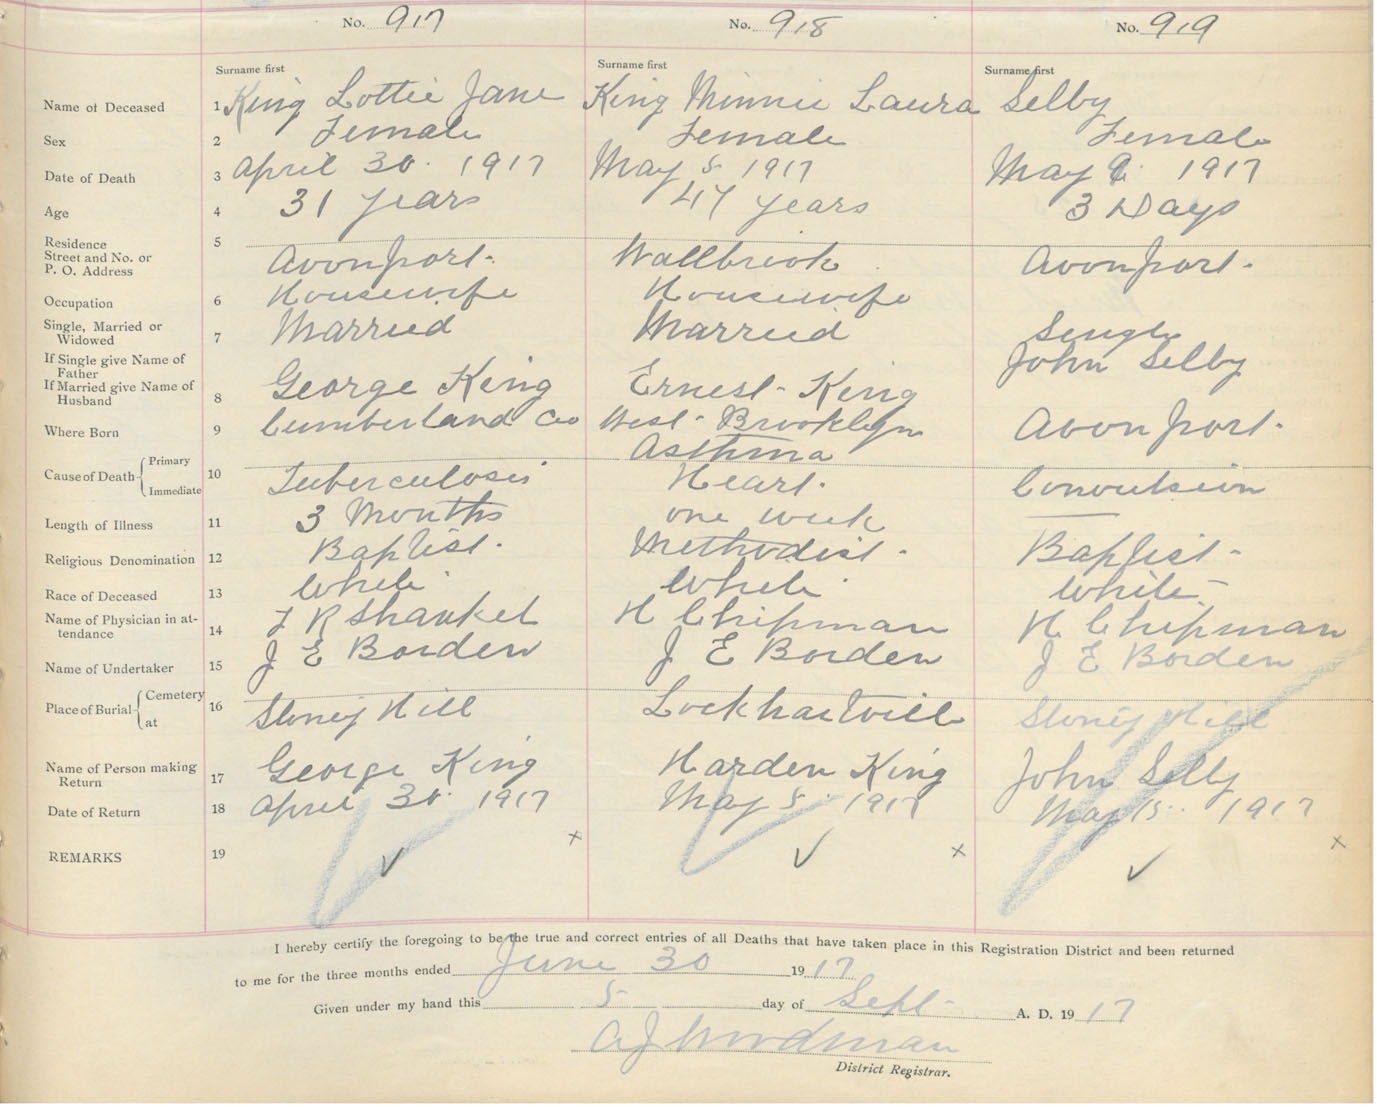 No. 917 No. 918 No. 919
Surname first Surname first Surname first
Name of Deceased 1 King Lottie Jane King Minnie Laura Selby
Sex 2 Female Female Female
Date of Death 3 April 30 1917 May 5 1917 May 9 1917
Age 4 31 years 47 years 3 Days
Residence Street and No. or P. O. Address 5 Avonport. Wallbrook Avonport.
Occupation 6 Housewife Housewife
Single, Married or Widowed 7 Married Married Single
If Single give Name of Father John Selby
If Married give Name of Husband 8 George King Ernest King
Where Born 9 Cumberland Co West Brooklyn Avonport.
Cause of Death Primary Asthma
Immediate 10 Tuberculosis Heart. Convulsion
Length of Illness 11 3 Months one week
Religious Denomination 12 Baptist. Methodist. Baptist
Race of Deceased 13 White White White
Name of Physician in attendance 14 F R Shankel H Chipman H Chipman
Name of Undertaker 15 J E Borden J E Borden J E Borden
Place of Burial Cemetery at 16 Stoney Hill Lockhartville Stoney Hill
Name of Person making Return 17 George King Harden King John Selby
Date of Return 18 April 30 1917 May 5 1917 May 15 1917
REMARKS 19
I hereby certify the foregoing to be the true and correct entries of all Deaths that have taken place in this Registration District and been returned
to me for the three months ended June 30 1917
Given under my hand this 5 day of Sept A. D. 1917
A J Woodman
District Registrar.